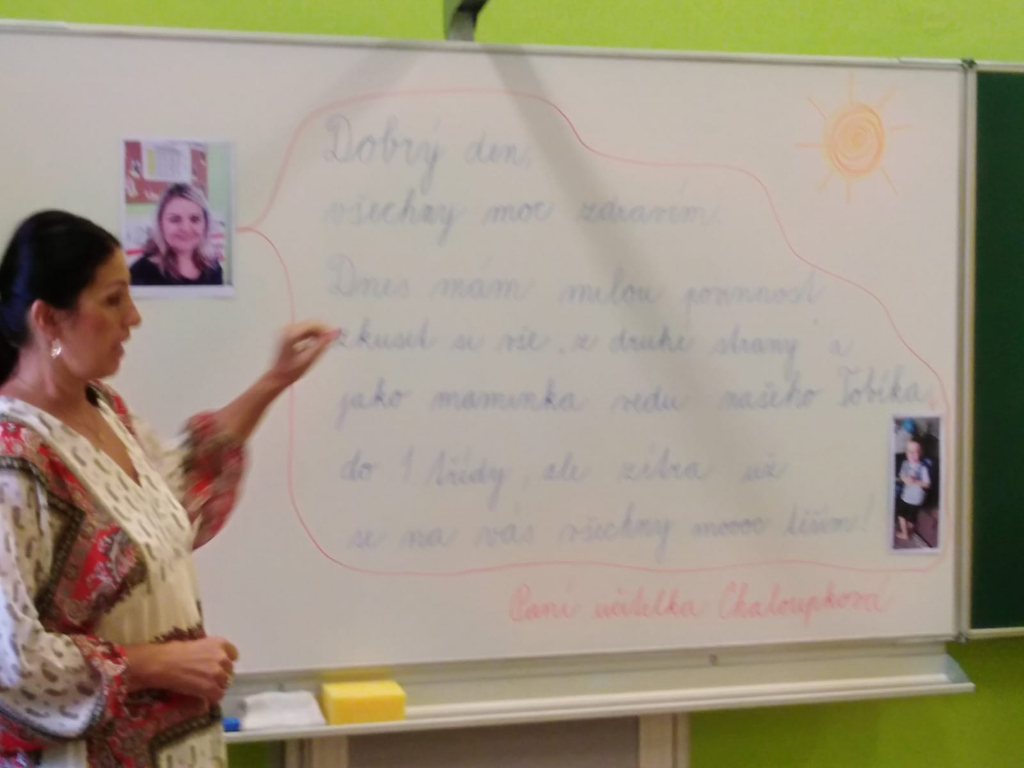 Dobrý den,
všechny moc zdravím.
Dnes mám milou povinnost
zkusit si vše z druhé strany a
jako maminka vedu našeho Tobíka
do 1 třídy, ale zítra už
se na vás všechny moooc těším!
Paní učitelka Chaloupková